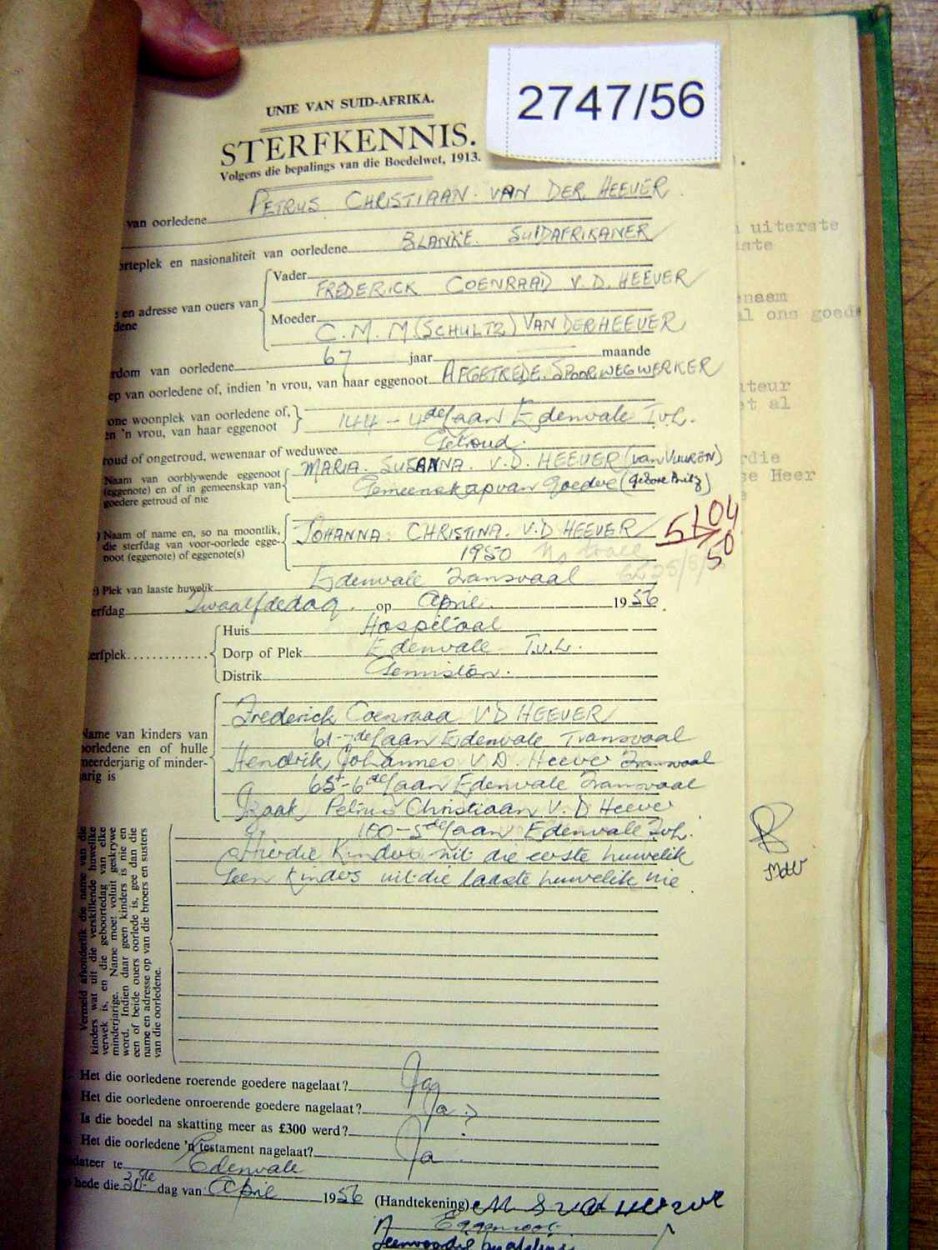 2747/56
UNIE VAN SUID-AFRIKA.
STERFKENNIS.
Volgens die bepalings van die Boedelwet, 1913.
van oorledene PETRUS CHRISTIAAN VAN DER HEEVER
orteplek en nasionaliteit van oorledene BLANKE SUIDAFRIKANER
e en adresse van ouers van dene
Vader FREDERICK COENRAAD V.D. HEEVER
Moeder C.M.M (SCHULTZ) VAN DER HEEVER
rdom van oorledene 67 jaar maande
ep van oorledene of, indien 'n vrou, van haar eggenoot AFGETREDE SPOORWEGWERKER
one woonplek van oorledene of, en 'n vrou, van haar eggenoot 144 - 4de Laan Edenvale Tvl.
roud of ongetroud, wewenaar of weduwee Getroud.
Naam van oorblywende eggenoot (eggenote) en of in gemeenskap van goedere getroud of nie
MARIA SUSANNA V.D. HEEVER (van VUUREN)
Gemeenskap van Goedere (gebore Britz)
) Naam of name en, so na moontlik, die sterfdag van voor-oorlede eggenoot (eggenote) of eggenote(s)
JOHANNA CHRISTINA V.D HEEVER 5104
1950 No trace 50
) Plek van laaste huwelik Edenvale Transvaal
erfdag Twaalfdedag op April 1956.
terfplek
Huis Hospitaal
Dorp of Plek Edenvale T.v.L.
Distrik Germiston.
Name van kinders van oorledene en of hulle meerderjarig of minderjarig is
Frederick Coenraad V D HEEVER
61 - 7de Laan Edenvale Transvaal
Hendrik Johannes V.D. Heever Transvaal
65 - 6de Laan Edenvale Transvaal
Izaak Petrus Christiaan V.D Heever
100 - 5de Laan Edenvale Tvl.
Hierdie Kinders uit die eerste huwelik
Geen Kinders uit die laaste huwelik nie
Vermeld afsonderlik die name van die
kinders wat uit die verskillende huwelike
verwek is, en die geboortedag van elke
minderjarige. Name moet voluit geskrywe
word. Indien daar geen kinders is nie en
een of beide ouers oorlede is, gee dan die
name en adresse op van die broers en susters
van die oorledene.
Het die oorledene roerende goedere nagelaat? Ja
Het die oorledene onroerende goedere nagelaat? Ja
Is die boedel na skatting meer as £300 werd?
Het die oorledene 'n testament nagelaat? Ja
dateer te Edenvale
hede die 30ste dag van April 1956 (Handtekening)
Eggenoot
uiterste
naam
al ons goed
uteur
et al
rdie
se Heer